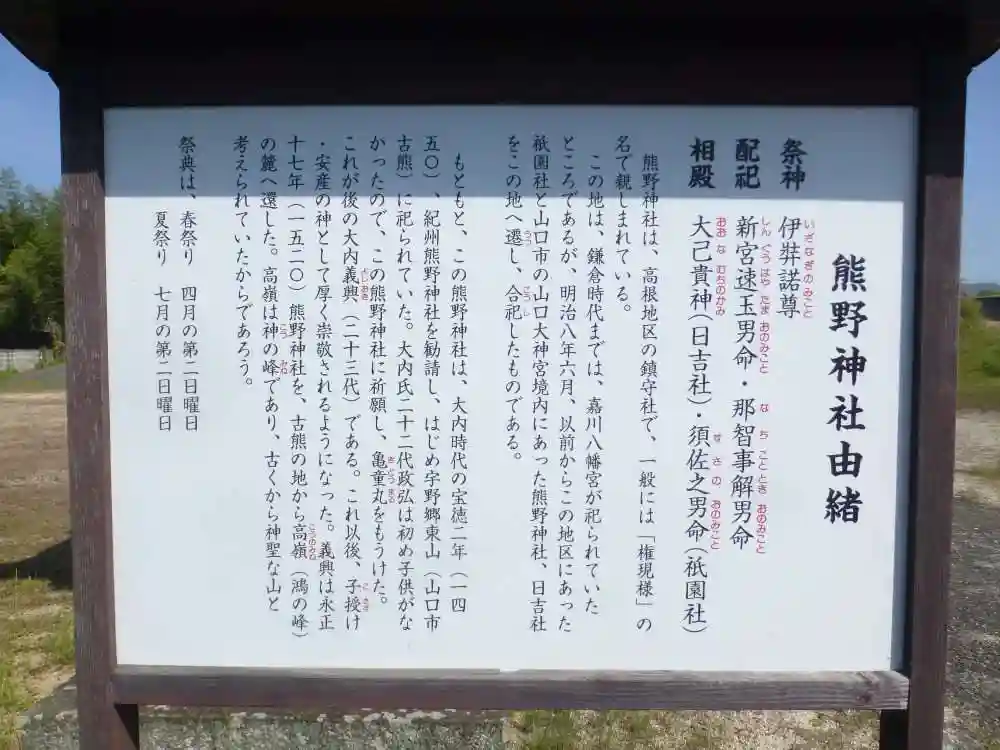 熊野神社由緒
祭神 伊弉諾尊
いざなぎのみこと
配祀 新宮速玉男命・那智事解男命
しんぐうはやたまおのみこと なちことときおのみこと
相殿 大己貴神(日吉社)・須佐之男命(祇園社)
おおなむちのかみ すさのおのみこと
熊野神社は、高根地区の鎮守社で、一般には「権現様」の
名で親しまれている。
この地は、鎌倉時代までは、嘉川八幡宮が祀られていた
ところであるが、明治八年六月、以前からこの地区にあった
祇園社と山口市の山口大神宮境内にあった熊野神社、日吉社
をこの地へ遷し、合祀したものである。
うつ ごうし
もともと、この熊野神社は、大内時代の宝徳二年(一四
五〇)、紀州熊野神社を勧請し、はじめ宇野郷東山(山口市
古熊)に祀られていた。大内氏二十二代政弘は初め子供がな
かったので、この熊野神社に祈願し、亀童丸をもうけた。
きどうまる
これが後の大内義興(二十三代)である。これ以後、子授け
よしおき こさず
・安産の神として厚く崇敬されるようになった。義興は永正
十七年(一五二〇)熊野神社を、古熊の地から高嶺(鴻の峰)
こうのみね
の麓へ還した。高嶺は神の峰であり、古くから神聖な山と
こう みね
考えられていたからであろう。
祭典は、春祭り 四月の第二日曜日
夏祭り 七月の第二日曜日